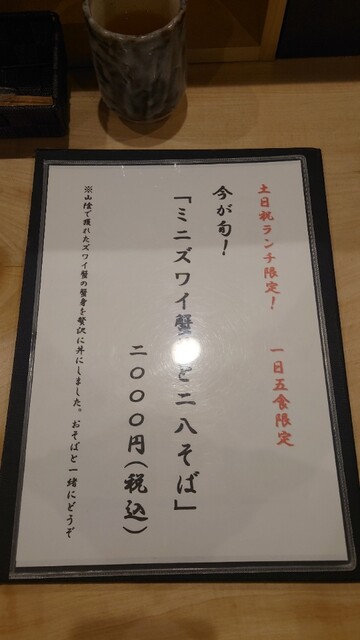 土日祝ランチ限定！ 一日五食限定
今が旬！
「ミニズワイ蟹 と二八そば」
二〇〇〇円(税込)
※山陰で獲れたズワイ蟹の蟹身を贅沢に丼にしました。おそばと一緒にどうぞ